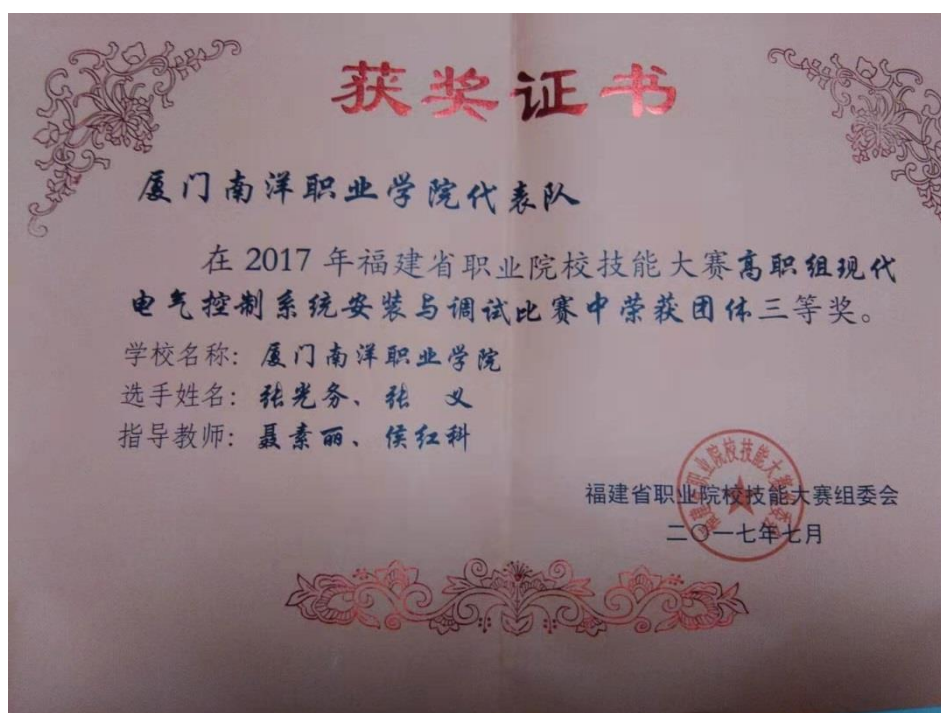 获奖证书
厦门南洋职业学院代表队
在 2017 年福建省职业院校技能大赛高职组现代
电气控制系统安装与调试比赛中荣获团体三等奖。
学校名称：厦门南洋职业学院
选手姓名：张光务、张　义
指导教师：聂素丽、侯红科
福建省职业院校技能大赛组委会
二〇一七年七月